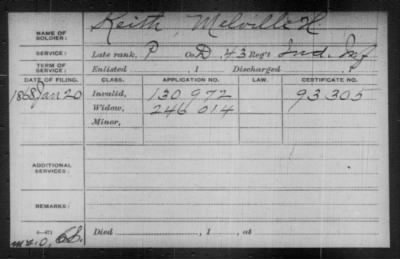 NAME OF SOLDIER: Keith, Melville H
SERVICE: Late rank, P Co. D, 43 Reg't Ind. Inf
TERM OF SERVICE: Enlisted , 1 Discharged , 1
DATE OF FILING. CLASS. APPLICATION NO. LAW. CERTIFICATE NO.
1868 Jan 20 Invalid, 130 972 93 305
Widow, 246 014
Minor,
ADDITIONAL SERVICES:
REMARKS:
Died , 1 , at